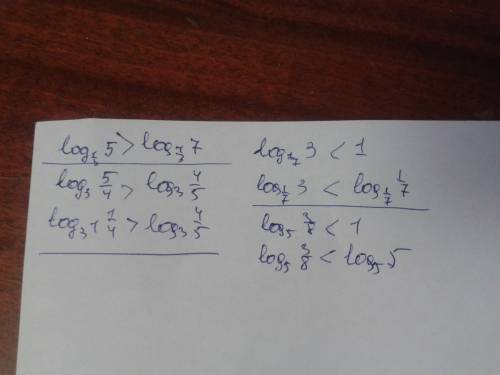 log 5 > log 7
log₃ 5/4 > log₃ 4/5
log₃ 1 1/4 > log₃ 4/5
log 3 < 1
log_{1/7} 3 < log_{1/7} 1/7
log₅ 3/8 < 1
log₅ 3/8 < log₅ 5